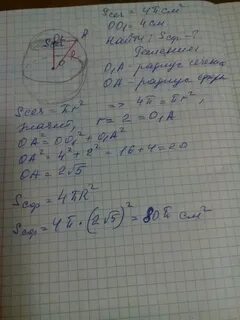 Sсеч = 4π см²
OO₁ = 4 см
Найти: Sсф - ?
Решение
O₁A - радиус сечения
OA - радиус сферы
Sсеч = πr² => 4π = πr²,
значит, r = 2 = O₁A
OA² = OO₁² + O₁A²
OA² = 4² + 2² = 16 + 4 = 20
OA = 2√5
Sсф = 4πR²
Sсф = 4π · (2√5)² = 80π см²